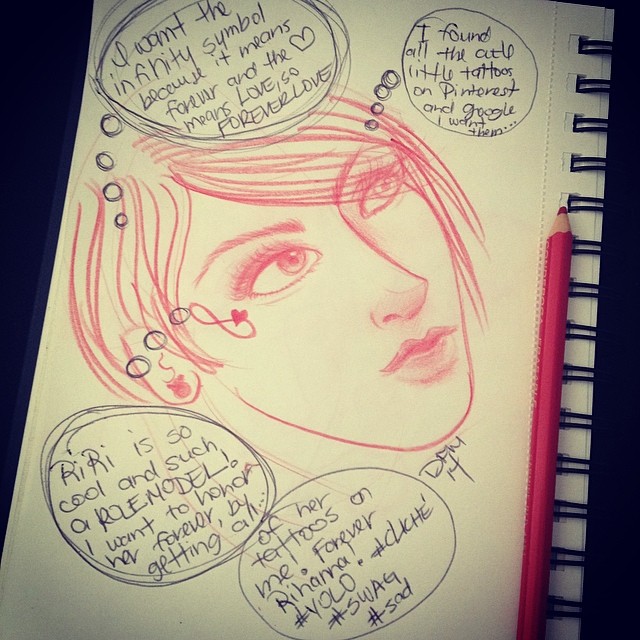 I want the
infinity symbol
because it means
forever and the ♡
means LOVE, SO
FOREVER LOVE
I found
all the cute
little tattoos
on Pinterest
and google
I want
them...
RiRi is so
cool and such
a ROLEMODEL.
I want to honor
her forever, by
getting all...
of her
tattoos on
me. Forever
Rihanna. #CLICHÉ
#YOLO
#SWAG
#sad
DPM
14